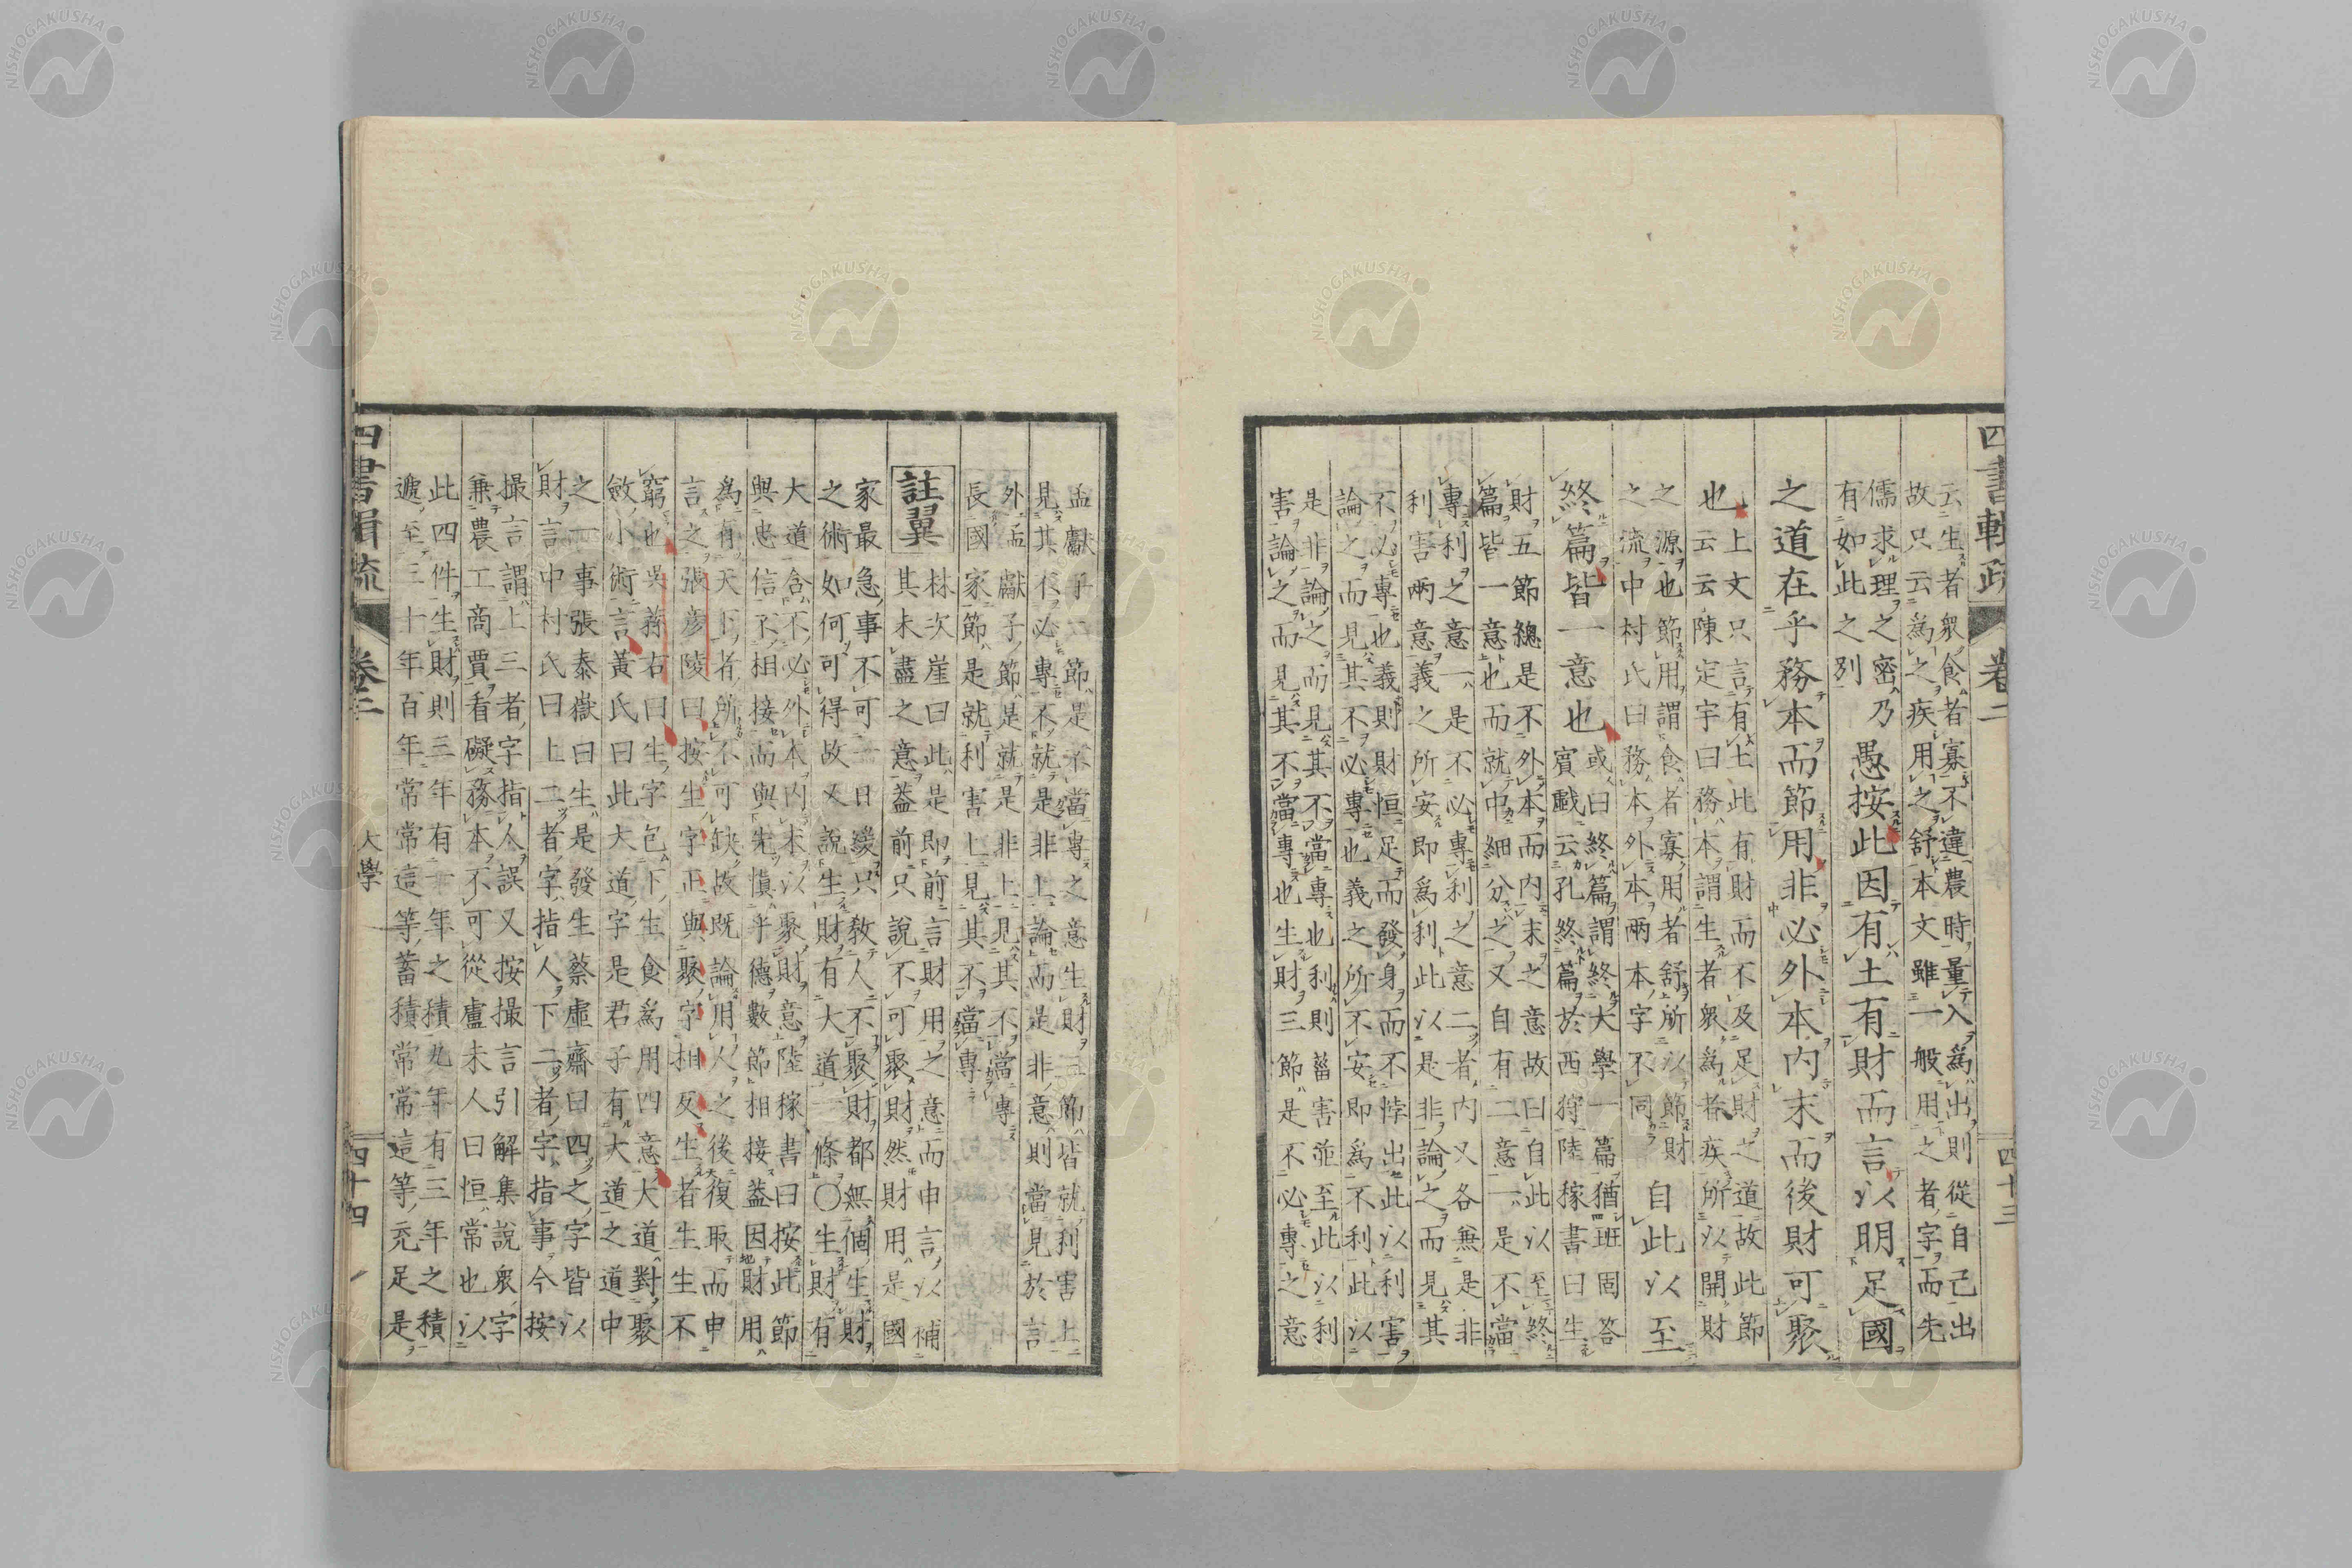 四書輯疏 卷二 四十三
云生者衆食者寡不違農時量入爲出則從自己出
故只云爲之疾用之舒本文雖一般用之者字而先
儒求理之密乃
有如此之列
愚按此因有土有財而言以明足國
之道在乎務本而節用非必外本内末而後財可聚
也
上文只言有土此有財而不及足財之道故此節
云云陳定宇曰務本謂生者衆爲者疾所以開財
之源也節用謂食者寡用者舒所以節財
之流中村氏曰務本外本兩本字不同
自此以至
終篇皆一意也
或曰終篇謂終大學一篇猶班固答
賓戲云孔終篇於西狩陸稼書曰生
財五節總是不外本而内末之意故曰自此以至終
篇皆一意也而就中細分之又自有二意一是不當
專利之意一是不必專利之意二者内又各無是非
利害兩意義之所安即爲利此以是非論之而見其
不必專也義則財恒足而發身而不悖出此以利害
論之而見其不必專也義之所不安即爲不利此以
是非論之而見其不當專也利則菑害並至此以利
害論之而見其不當專也生財三節是不必專之意
孟獻子二節是不當專之意生財三節皆就利害上
見其不必專不就是非上論而是非意則當見於言
外孟獻子節是就是非上見其不當專
長國家節是就利害上見其不當專
註翼
林次崖曰此是即前言財用之意而申言以補
其未盡之意蓋前只說不可聚財然財用是國
家最急事不可一日緩只教人不聚財都無個生財
之術如何可得故又說生財有大道一條〇生財有
大道含不必外本内末以聚財意陸稼書曰按此節
與忠信不相接而與先慎乎德數節相接蓋因財用
爲有天下者所不可缺故既論用人之後復取而申
言之張彦陵曰按生字正與聚字相反生者生生不
窮也吳蓀右曰生字包下生食爲用四意大道對聚
斂小術言黃氏曰此大道字是君子有大道之道中
之一事張泰嶽曰生是發生蔡虛齋曰四之字皆以
財言中村氏曰上二者字指人下二者字指事今按
撮言謂上三者字指人誤又按撮言引解集說衆字
兼農工商賈看礙務本不可從盧未人曰恒常也以
此四件生財則三年有一年之積九年有三年之積
遞至三十年百年常常這等蓄積常常這等充足是
四書輯疏 卷二 大學 四十四